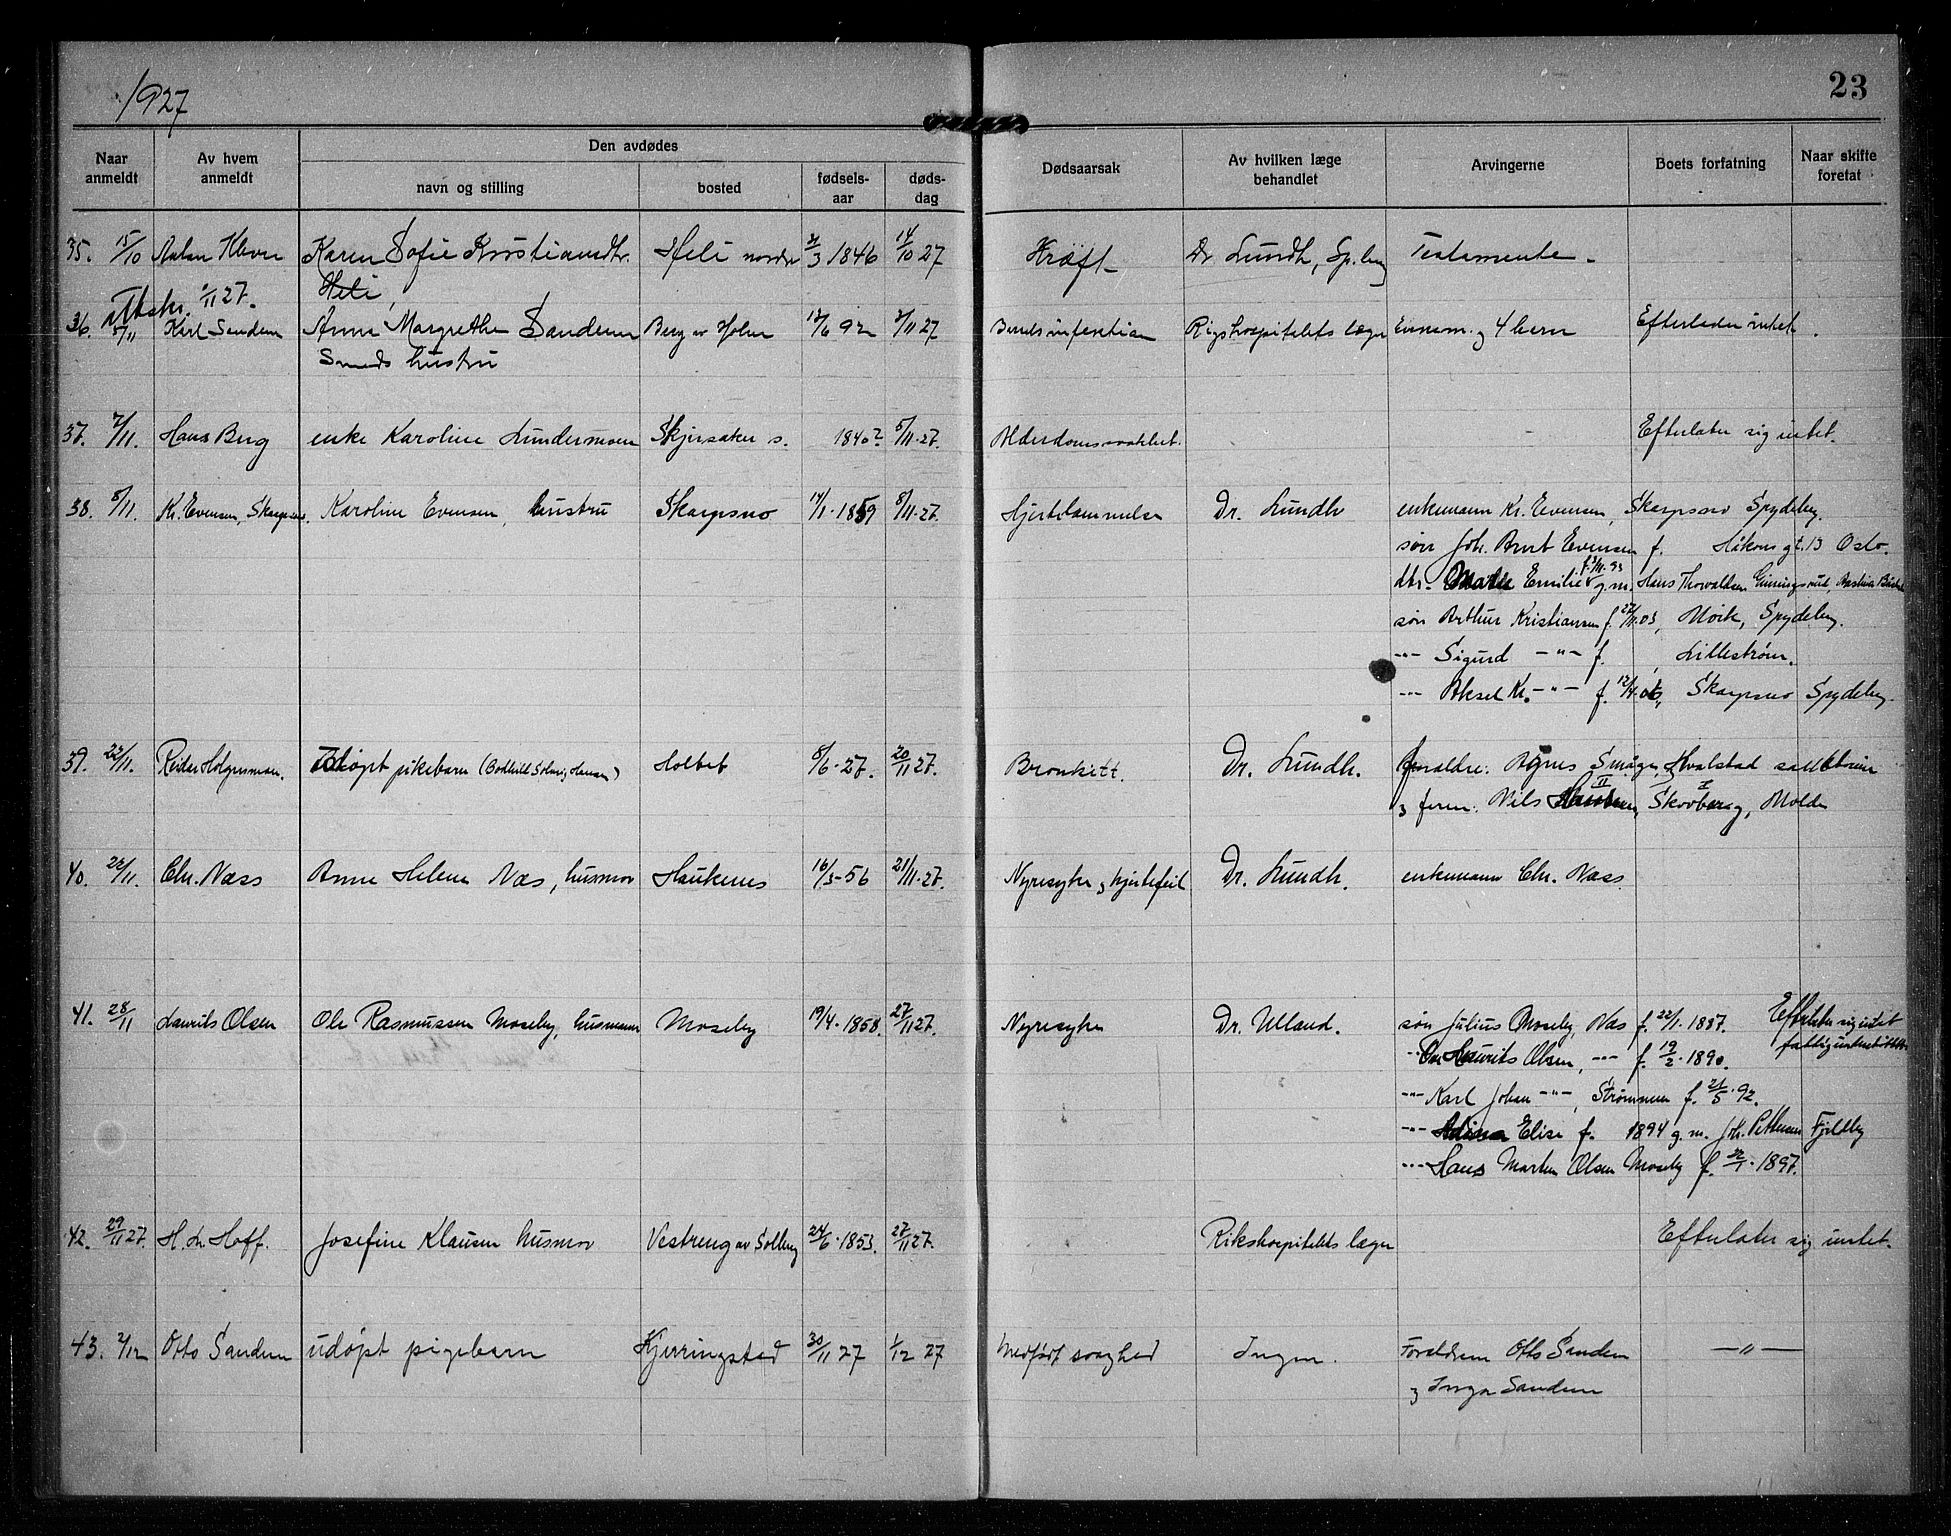 1927
23
Naar anmeldt
Av hvem anmeldt
Den avdødes
navn og stilling
bosted
fødsels-aar
døds-dag
Dødsaarsak
Av hvilken læge behandlet
Arvingerne
Boets forfatning
Naar skifte foretat
35. 15/10 Kleven Karen Sofie Kristiansdtr. Heli nordre /3 1846 14/10 27 Kræft Dr. Lundh, Testamente.
Heli,
/11 27.
36. 5/11 Karl Sandem Anne Margrethe Sandem Berg av Holm 12/6 92 2/11 27 Rigshospitalets læger Enkem. og 4 barn Efterlader intet.
Smeds hustru
37. 7/11. Hans Berg enke Karoline Lundermoen Skjersaker s. 1840? 5/11.27. Alderdomssvakhet. Efterlater sig intet.
38. 8/11. Kr. Evensen, Skarpsno. Karoline Evensen, hustru Skarpsno 14/1.1859 8/11.27. Hjertelammelse Dr. Lundh enkemann Kr. Evensen, Skarpsno Spydeberg.
søn Joh. Arnt Evensen f. Håkons gt. 13 Oslo.
dtr. Emilie g.m. Hans Thorvaldsen
søn Arthur Kristiansen f. 27/11.03, Moik, Spydeberg.
-"- Sigurd -"- f. , Lillestrøm.
-"- Aksel Kr. -"- f. 12/4.06, Skarpsno Spydeberg.
39. 22/11. Reidar Holgersmoen. Udøpt pikebarn (Bodhild Solveig Hansen) Holtet 8/6.27. 20/11 27. Bronkitt. Dr. Lundh. foreldre: Agnes Hvalstad
og Nils Skovberg, Molde
40. 22/11. Chr. Næss Anne Helene Næs, husmor Haukenes 16/3-56 21/11.27. Nyresyke og hjertefeil Dr. Lundh. enkemann Chr. Næss.
41. 28/11 Laurits Olsen Ole Rasmussen Moseby, husmann Moseby 19/4.1858. 27/11 27. Nyresyke Dr. Ulland. søn Julius Moseby, Næs f. 22/1.1887. Efterlater sig intet
-"- Laurits Olsen, -"- f. 19/2.1890.
-"- Karl Johan -"-, Strømmen f. 21/5.92.
-"- Elise f. 1894 g.m. Joh. Pettersen Fjeldby
-"- Hans Martin Olsen Moseby f. /1.1897.
42. 29/11 27. H. Hoff. Josefine Klausen husmor Vestreng av Solberg 24/6.1853. 27/11 27. Rikshospitalets læger Efterlater sig intet.
43. 2/12 Otto Sandem udøpt pigebarn Kjerringstad 30/11 27 1/12 27 Medfødt svaghed Ingen. Forældrene Otto Sandem -"-
og Inga Sandem